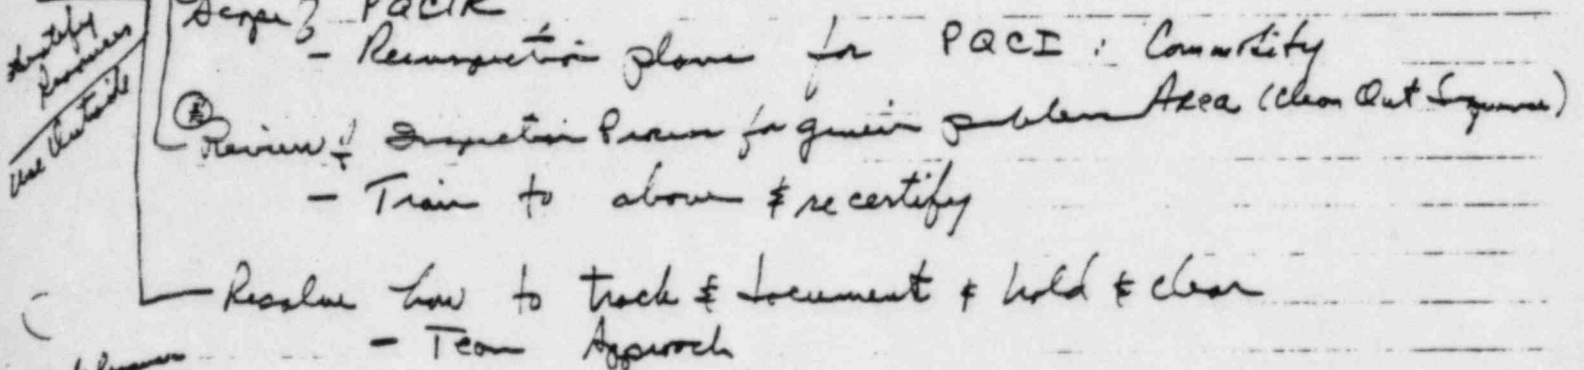 Identify
Resources
Use Outside
Scope } PQCIR
- Reinspection plans for PQCI : Commodity
Review & Inspection Process for generic problem Area (Clean Out Sequence)
- Train to above & recertify
Resolve how to track & document & hold & clear
- Team Approach